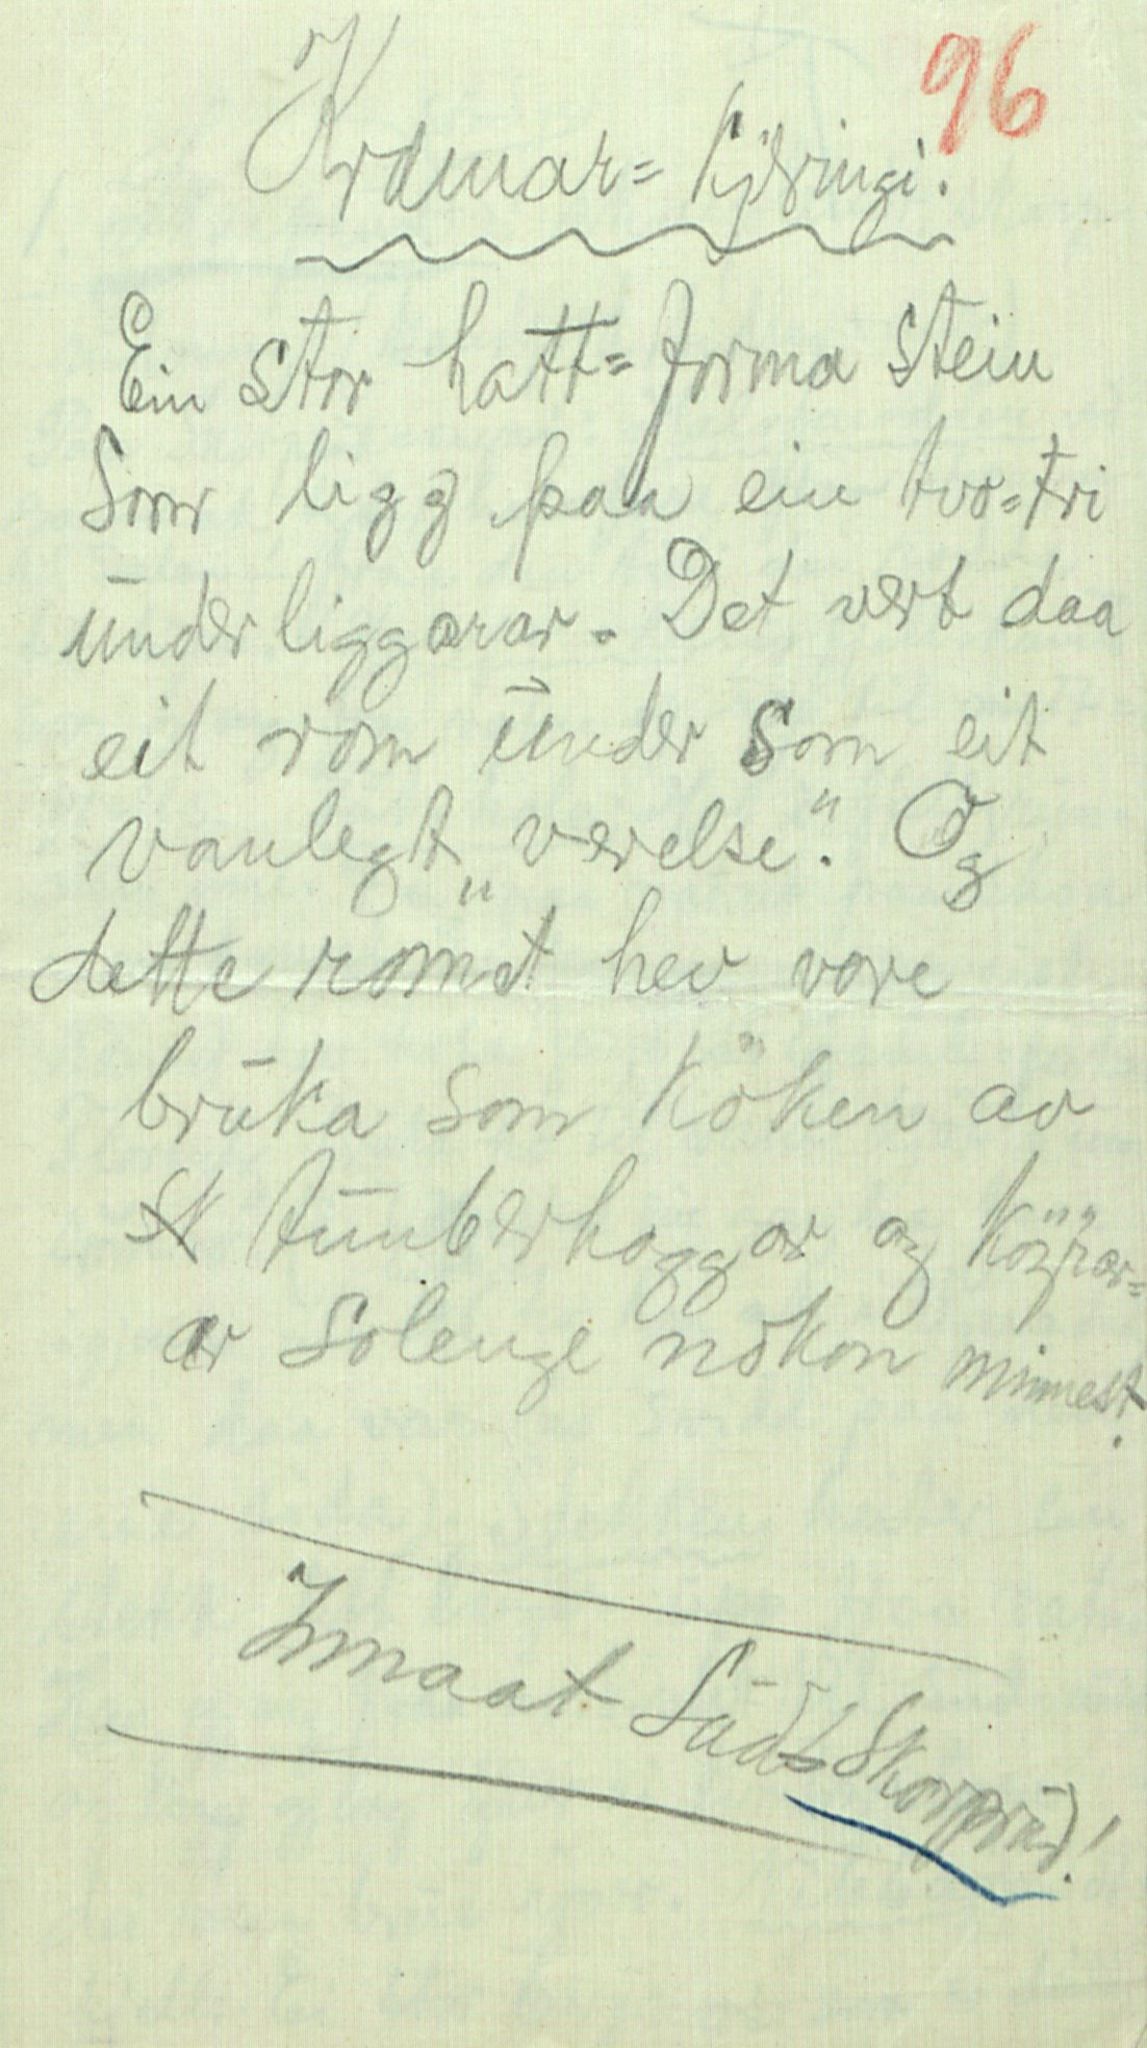 96
Kramar= Kjeringi.
Ein stor hatt=forma stein
som ligg paa ein tvo=tri
underliggarar. Det vert daa
eit rom under som eit
vanlegt „verelse". Og
dette romet hev vore
bruka som köken av
tümberhoggar og köÿrar=
ar solenge nokon minnest.
Innaat Süd